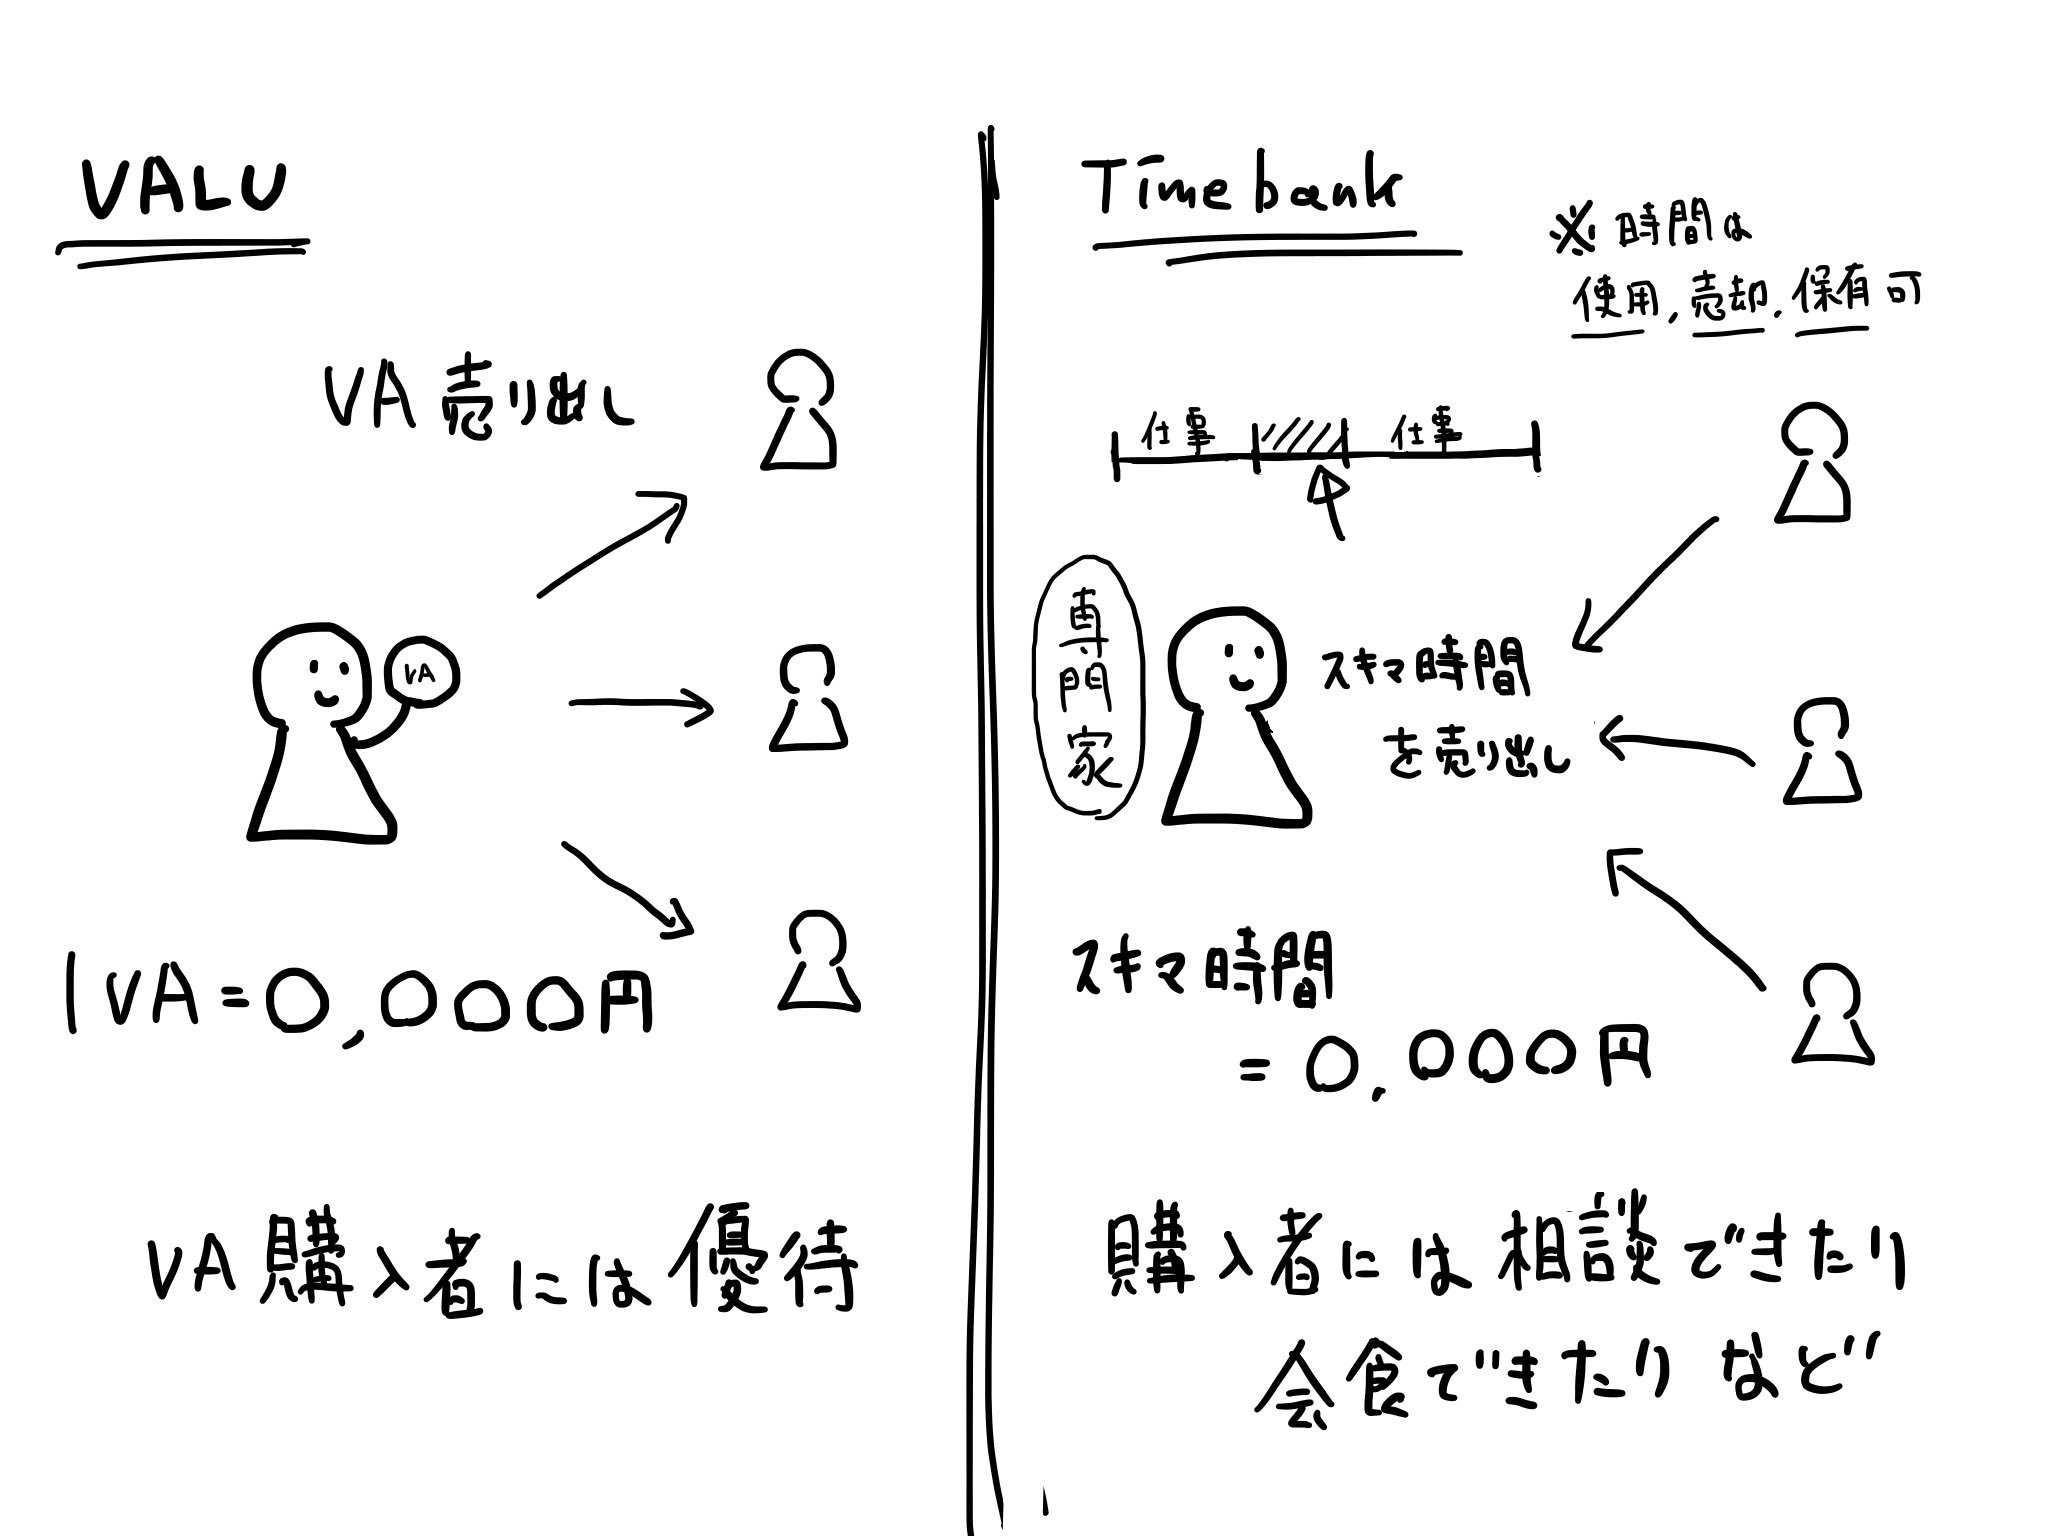 VALU
VA 売り出し
VA
1 VA = 0,000円
VA 購入者には優待
Time bank
※ 時間は
使用,売却,保有可
仕事 仕事
専門家
スキマ時間
を売り出し
スキマ時間
= 0,000円
購入者には相談できたり
会食できたりなど